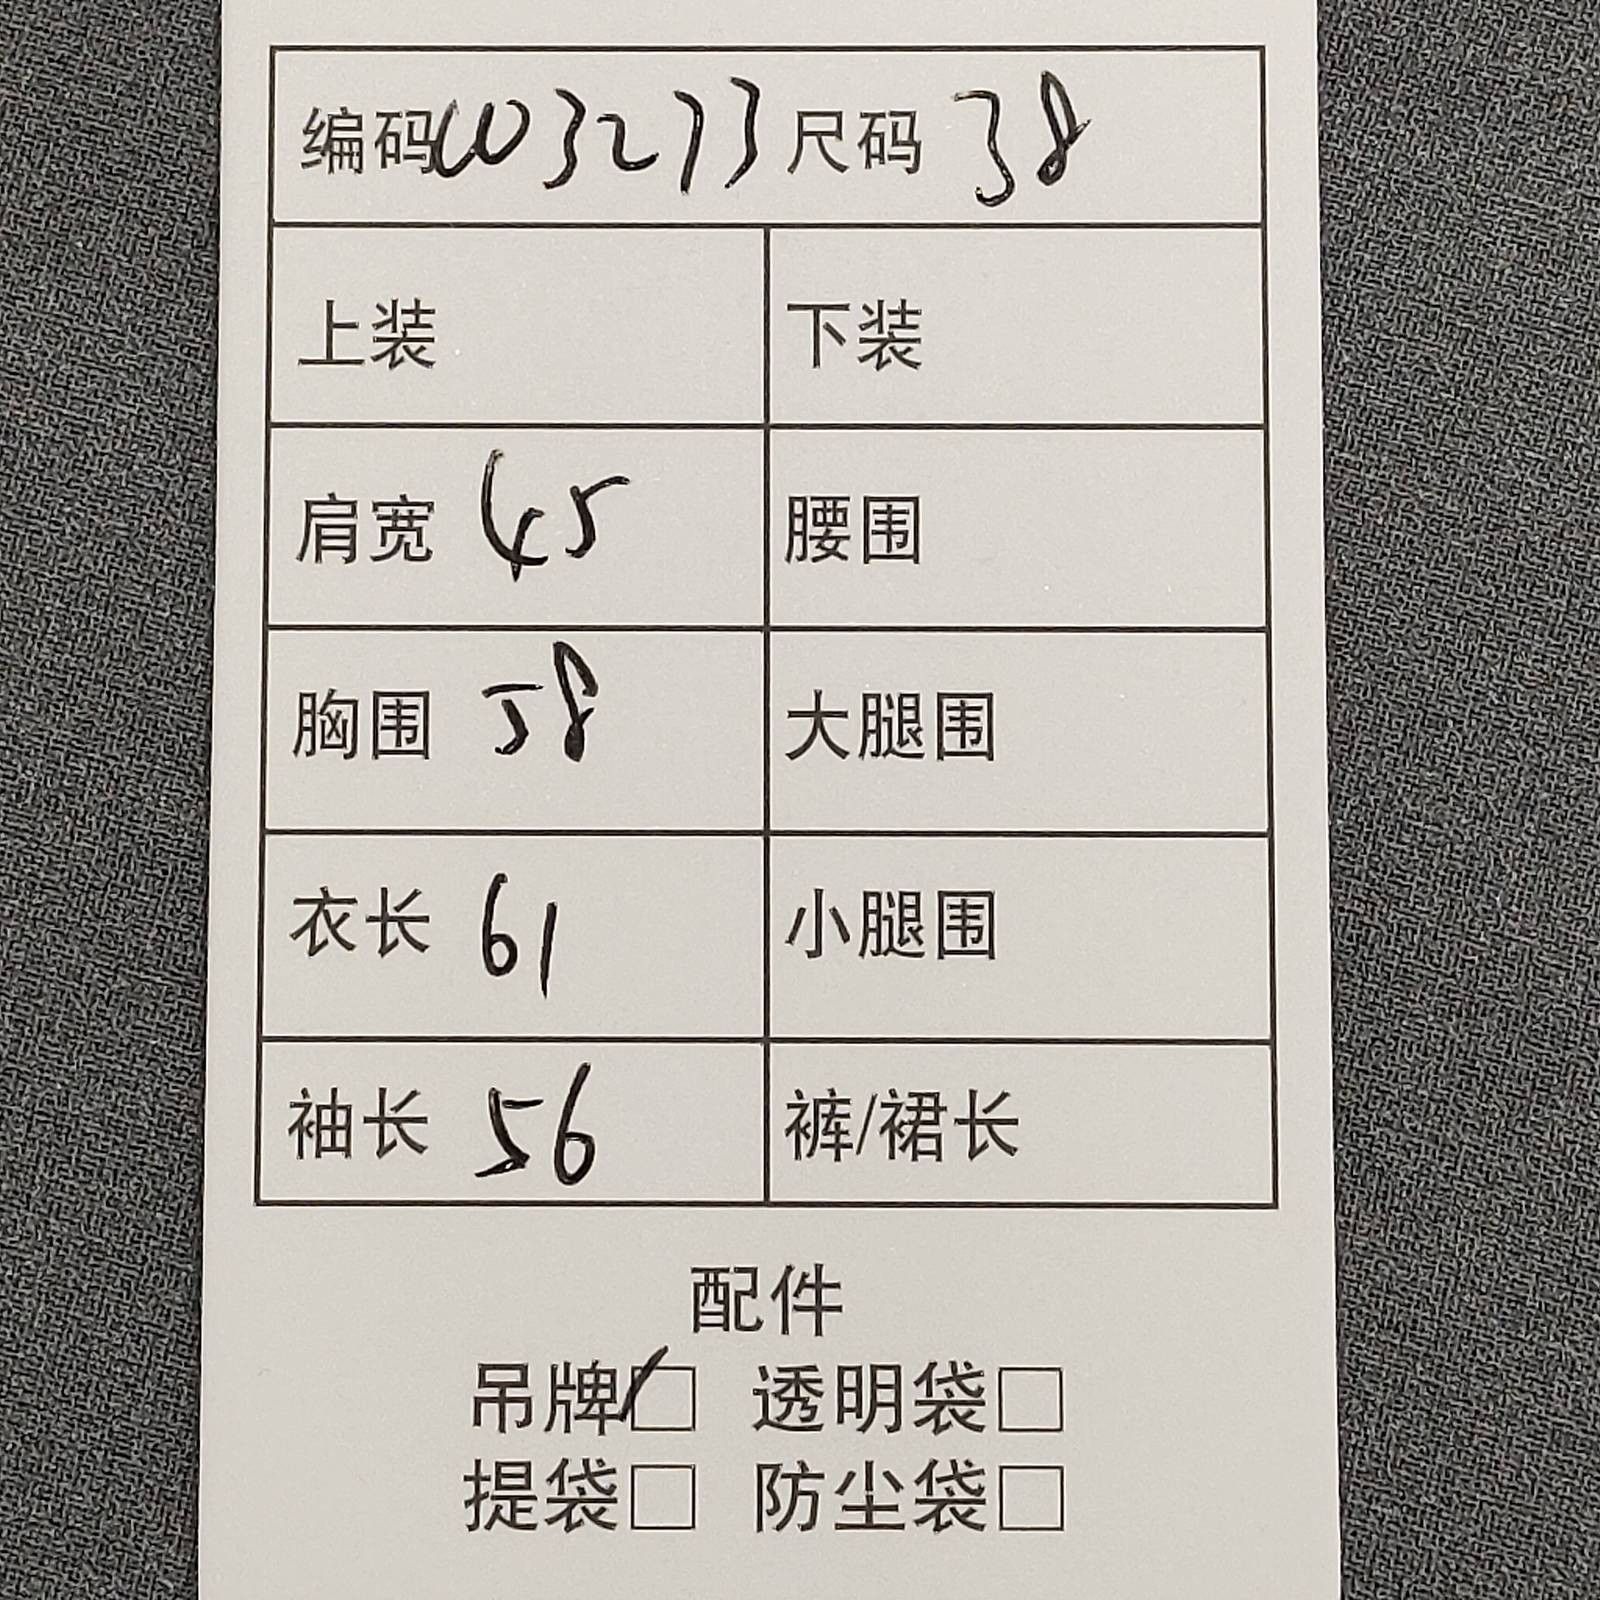 编码W03273 尺码 38
上装 下装
肩宽 45 腰围
胸围 58 大腿围
衣长 61 小腿围
袖长 56 裤/裙长
配件
吊牌☑ 透明袋□
提袋□ 防尘袋□